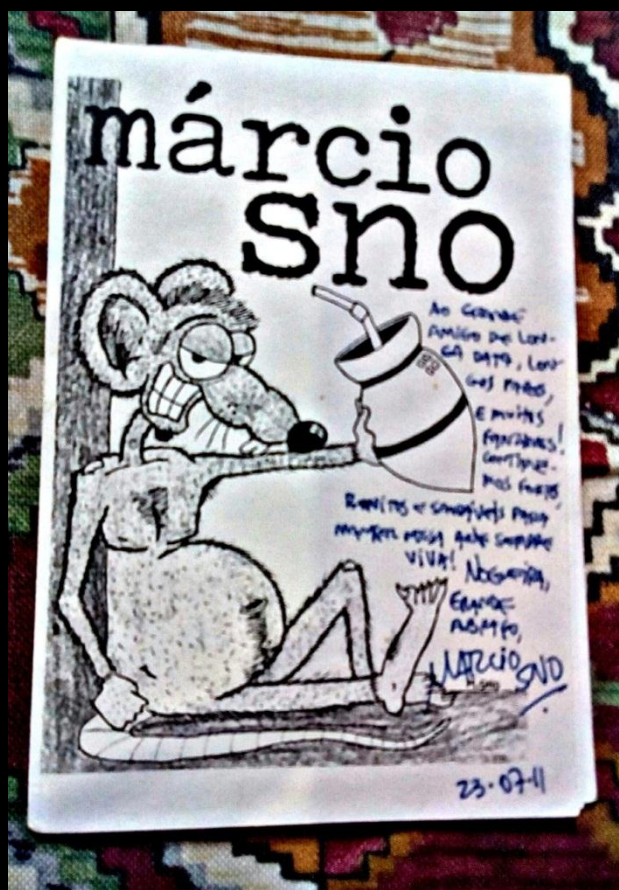 márcio
sno
AO GRANDE
AMIGO DE LON-
GA DATA, LON-
GOS PAPOS,
E MUITAS
FANZINES!
CONTINUE-
MOS FORTES,
BONITOS E SAUDÁVEIS PARA
MANTER NOSSA ARTE SEMPRE
VIVA! NOGUEIRA,
GRANDE
ABRAÇO,
MÁRCIO SNO
23-07-11